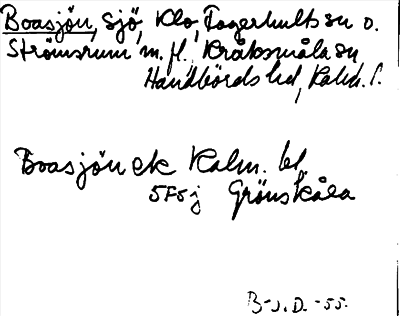 Boasjön, sjö, Klo, Fagerhults sn o.
Strömsrum m.fl., Kråksmåla sn
Handbörds hd, Kalm. l.
Boasjön ek Kalm. bl.
5F5j Grönskåra
B-J.D.-55.